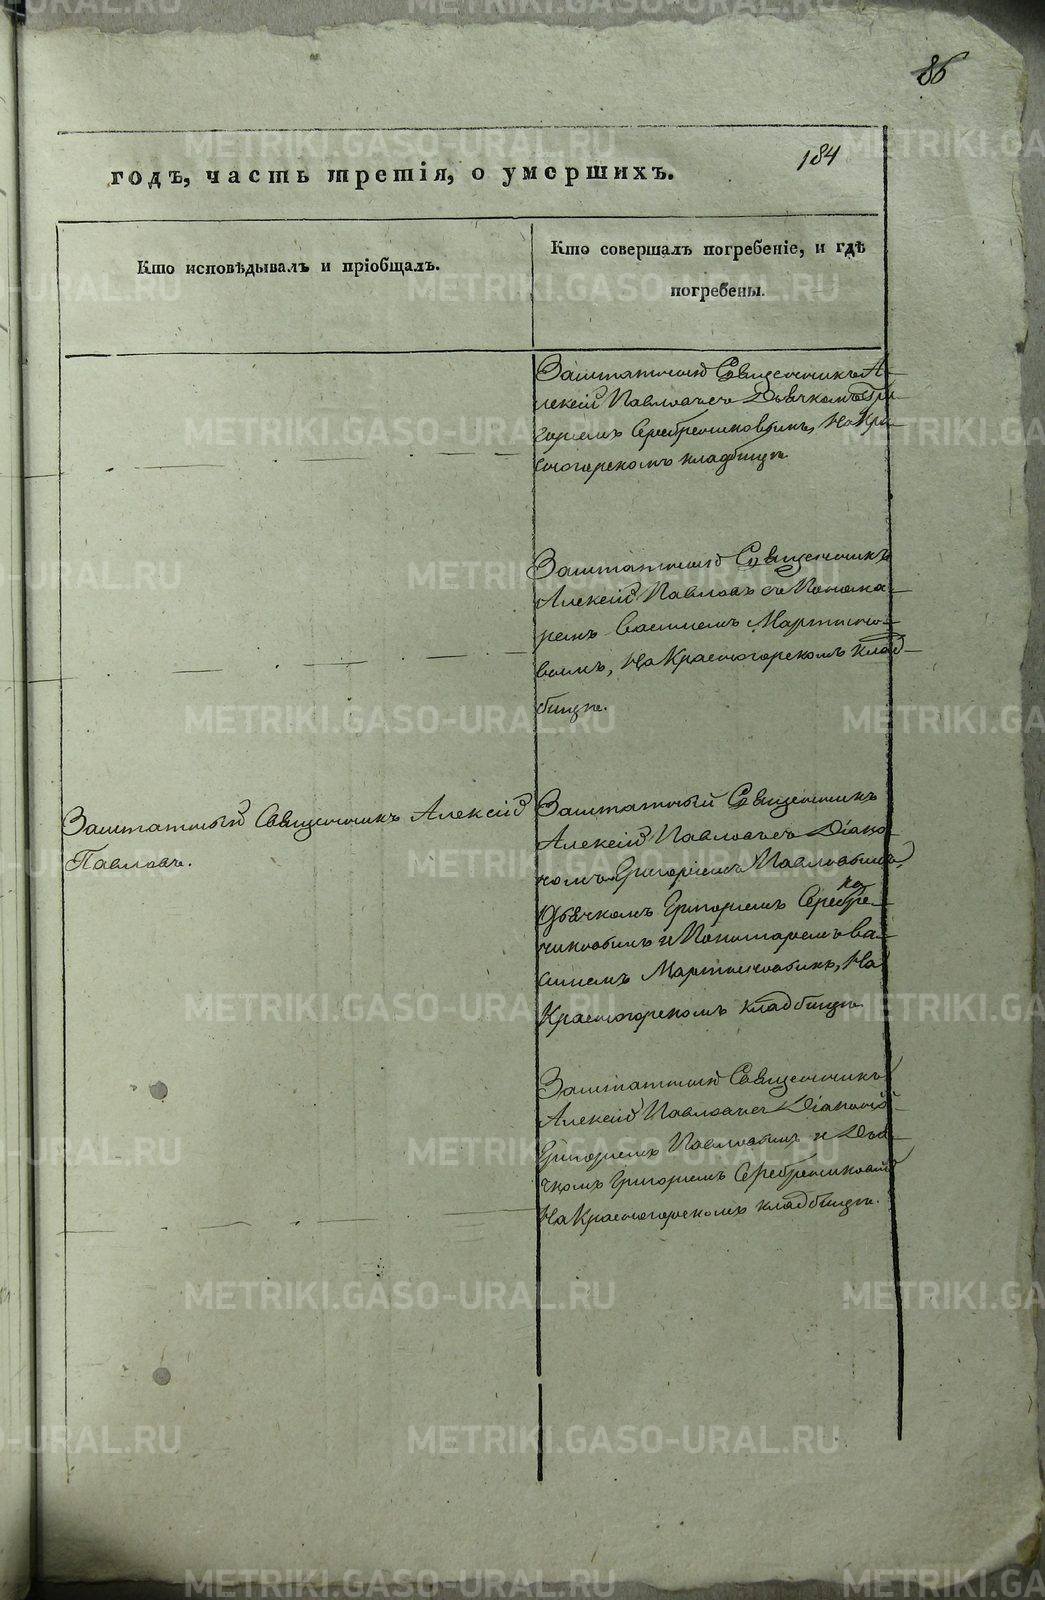 86
184
годъ, часть третія, о умершихъ.
Кто исповѣдывалъ и пріобщалъ.
Кто совершалъ погребеніе, и гдѣ
погребены.
Заштатный Священникъ А-
лексій Павловъ съ Дьячкомъ Гри
горіемъ Серебрениковымъ, На Кра-
сногорскомъ кладбищѣ.
Заштатный Священникъ
Алексій Павловъ съ Понома-
ремъ Василіемъ Мартыно-
вымъ, На Красногорскомъ клад-
бищѣ.
Заштатный Священникъ Алексій
Павловъ.
Заштатный Священникъ
Алексій Павловъ съ Діако-
номъ Григоріемъ Павловымъ,
Дьячкомъ Григоріемъ Серебре-
никовымъ и Пономаремъ Ва-
силіемъ Мартыновымъ, На
Красногорскомъ кладбищѣ.
Заштатный Священникъ
Алексій Павловъ съ Діакономъ
Григоріемъ Павловымъ и Дья-
чкомъ Григоріемъ Серебрениковымъ
На Красногорскомъ кладбищѣ.
METRIKI.GASO-URAL.RU